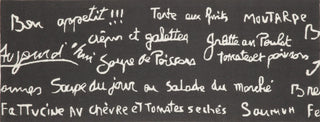 Bon appetit!!! Tarte aux fruits MOUTARDE
crêpes et galettes Gratin au Poulet
Aujourd'hui Soupe de Poissons tomates et poivrons
Soupe du jour ou salade du marché
FATTUCINE AU CHÈVRE ET TOMATES SECHÉS SAUMON